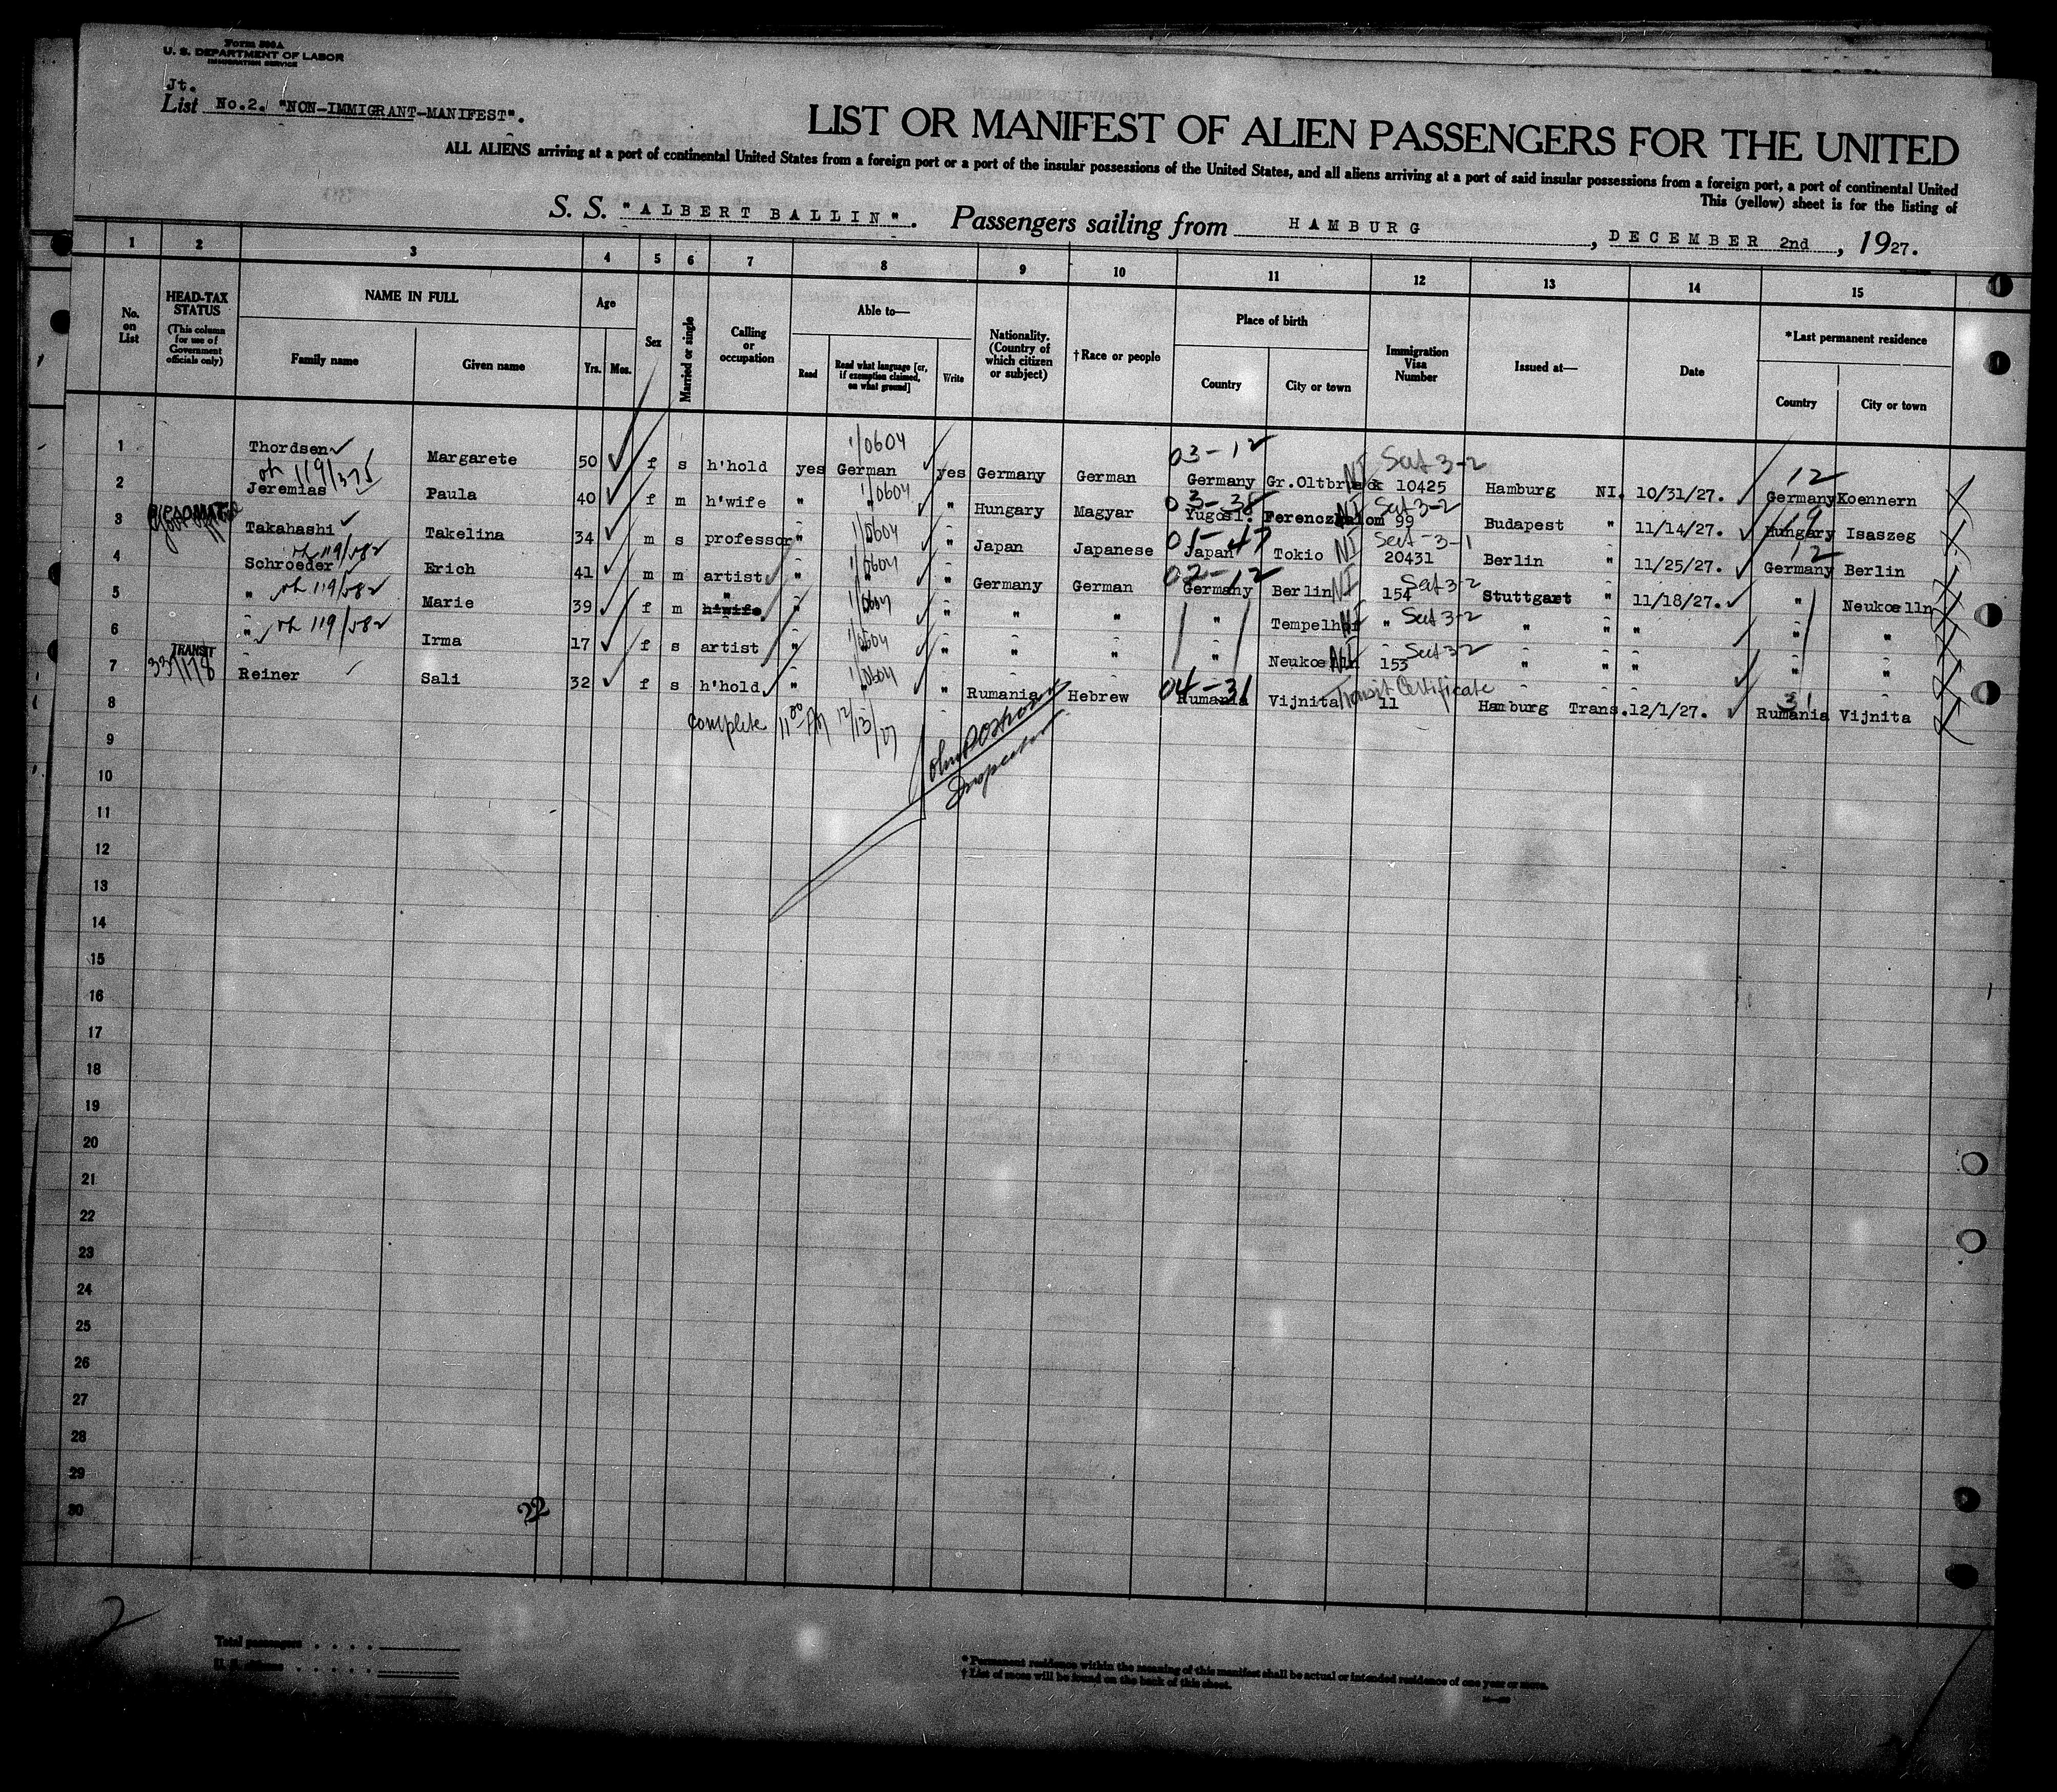 Form 500A
U. S. DEPARTMENT OF LABOR
IMMIGRATION SERVICE
Jt.
List No.2. "NON-IMMIGRANT-MANIFEST".
LIST OR MANIFEST OF ALIEN PASSENGERS FOR THE UNITED
ALL ALIENS arriving at a port of continental United States from a foreign port or a port of the insular possessions of the United States, and all aliens arriving at a port of said insular possessions from a foreign port, a port of continental United
This (yellow) sheet is for the listing of
S. S. "ALBERT BALLIN". Passengers sailing from HAMBURG, DECEMBER 2nd, 1927.
1 2 3 4 5 6 7 8 9 10 11 12 13 14 15
No. on List
HEAD-TAX STATUS (This column for use of Government officials only)
NAME IN FULL Family name Given name
Age Yrs. Mos.
Sex
Married or single
Calling or occupation
Able to— Read Read what language [or, if exemption claimed, on what ground] Write
Nationality. (Country of which citizen or subject)
†Race or people
Place of birth Country City or town
Immigration Visa Number
Issued at—
Date
*Last permanent residence Country City or town
1 Thordsen Margarete 50 f s h'hold yes German 1/0604 yes Germany German 03-12 Germany Gr.Oltbr k NI Sect 3-2 10425 Hamburg NI. 10/31/27. 12 Germany Koennern
2 119/375 Jeremias Paula 40 f m h'wife " " 1/0604 " Hungary Magyar 03-38 Yugosl. Ferenczhalom NI Sect 3-2 99 Budapest " 11/14/27. 19 Hungary Isaszeg
3 DIPLOMAT Takahashi Takelina 34 m s professor " " 1/0604 " Japan Japanese 01-47 Japan Tokio NI Sect 3-1 20431 Berlin " 11/25/27. 12 Germany Berlin
4 119/582 Schroeder Erich 41 m m artist " " 1/0604 " Germany German 02-12 Germany Berlin NI Sect 3-2 154 Stuttgart " 11/18/27. " Neukoelln
5 " 119/582 Marie 39 f m " h'wife " " 1/0604 " " " " Tempelhof NI " Sect 3-2 " " " " "
6 " 119/582 Irma 17 f s artist " " 1/0604 " " " " Neukoelln NI Sect 3-2 153 " " " " "
7 TRANSIT 33/178 Reiner Sali 32 f s h'hold " " 1/0604 " Rumania Hebrew 04-31 Rumania Vijnita Transit Certificate 11 Hamburg Trans. 12/1/27. 31 Rumania Vijnita
8 complete 11 00 AM 12/13/27
Inspector
9
10
11
12
13
14
15
16
17
18
19
20
21
22
23
24
25
26
27
28
29
30
22
2
Total passengers
U. S. citizens
*Permanent residence within the meaning of this manifest shall be actual or intended residence of one year or more.
†List of races will be found on the back of this sheet.